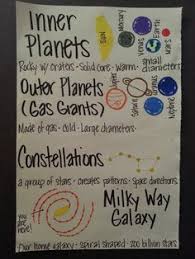 Inner
Planets
SUN Mercury Venus Earth Mars
Rocky w/ craters · Solid core · Warm · small diameters
Outer Planets
(Gas Giants)
Jupiter Saturn Uranus Neptune
Made of gas · Cold · Large diameters
Constellations
a group of stars · creates patterns · space directions
Milky Way
Galaxy
you are here!
Our home galaxy · spiral shaped · 200 billion stars